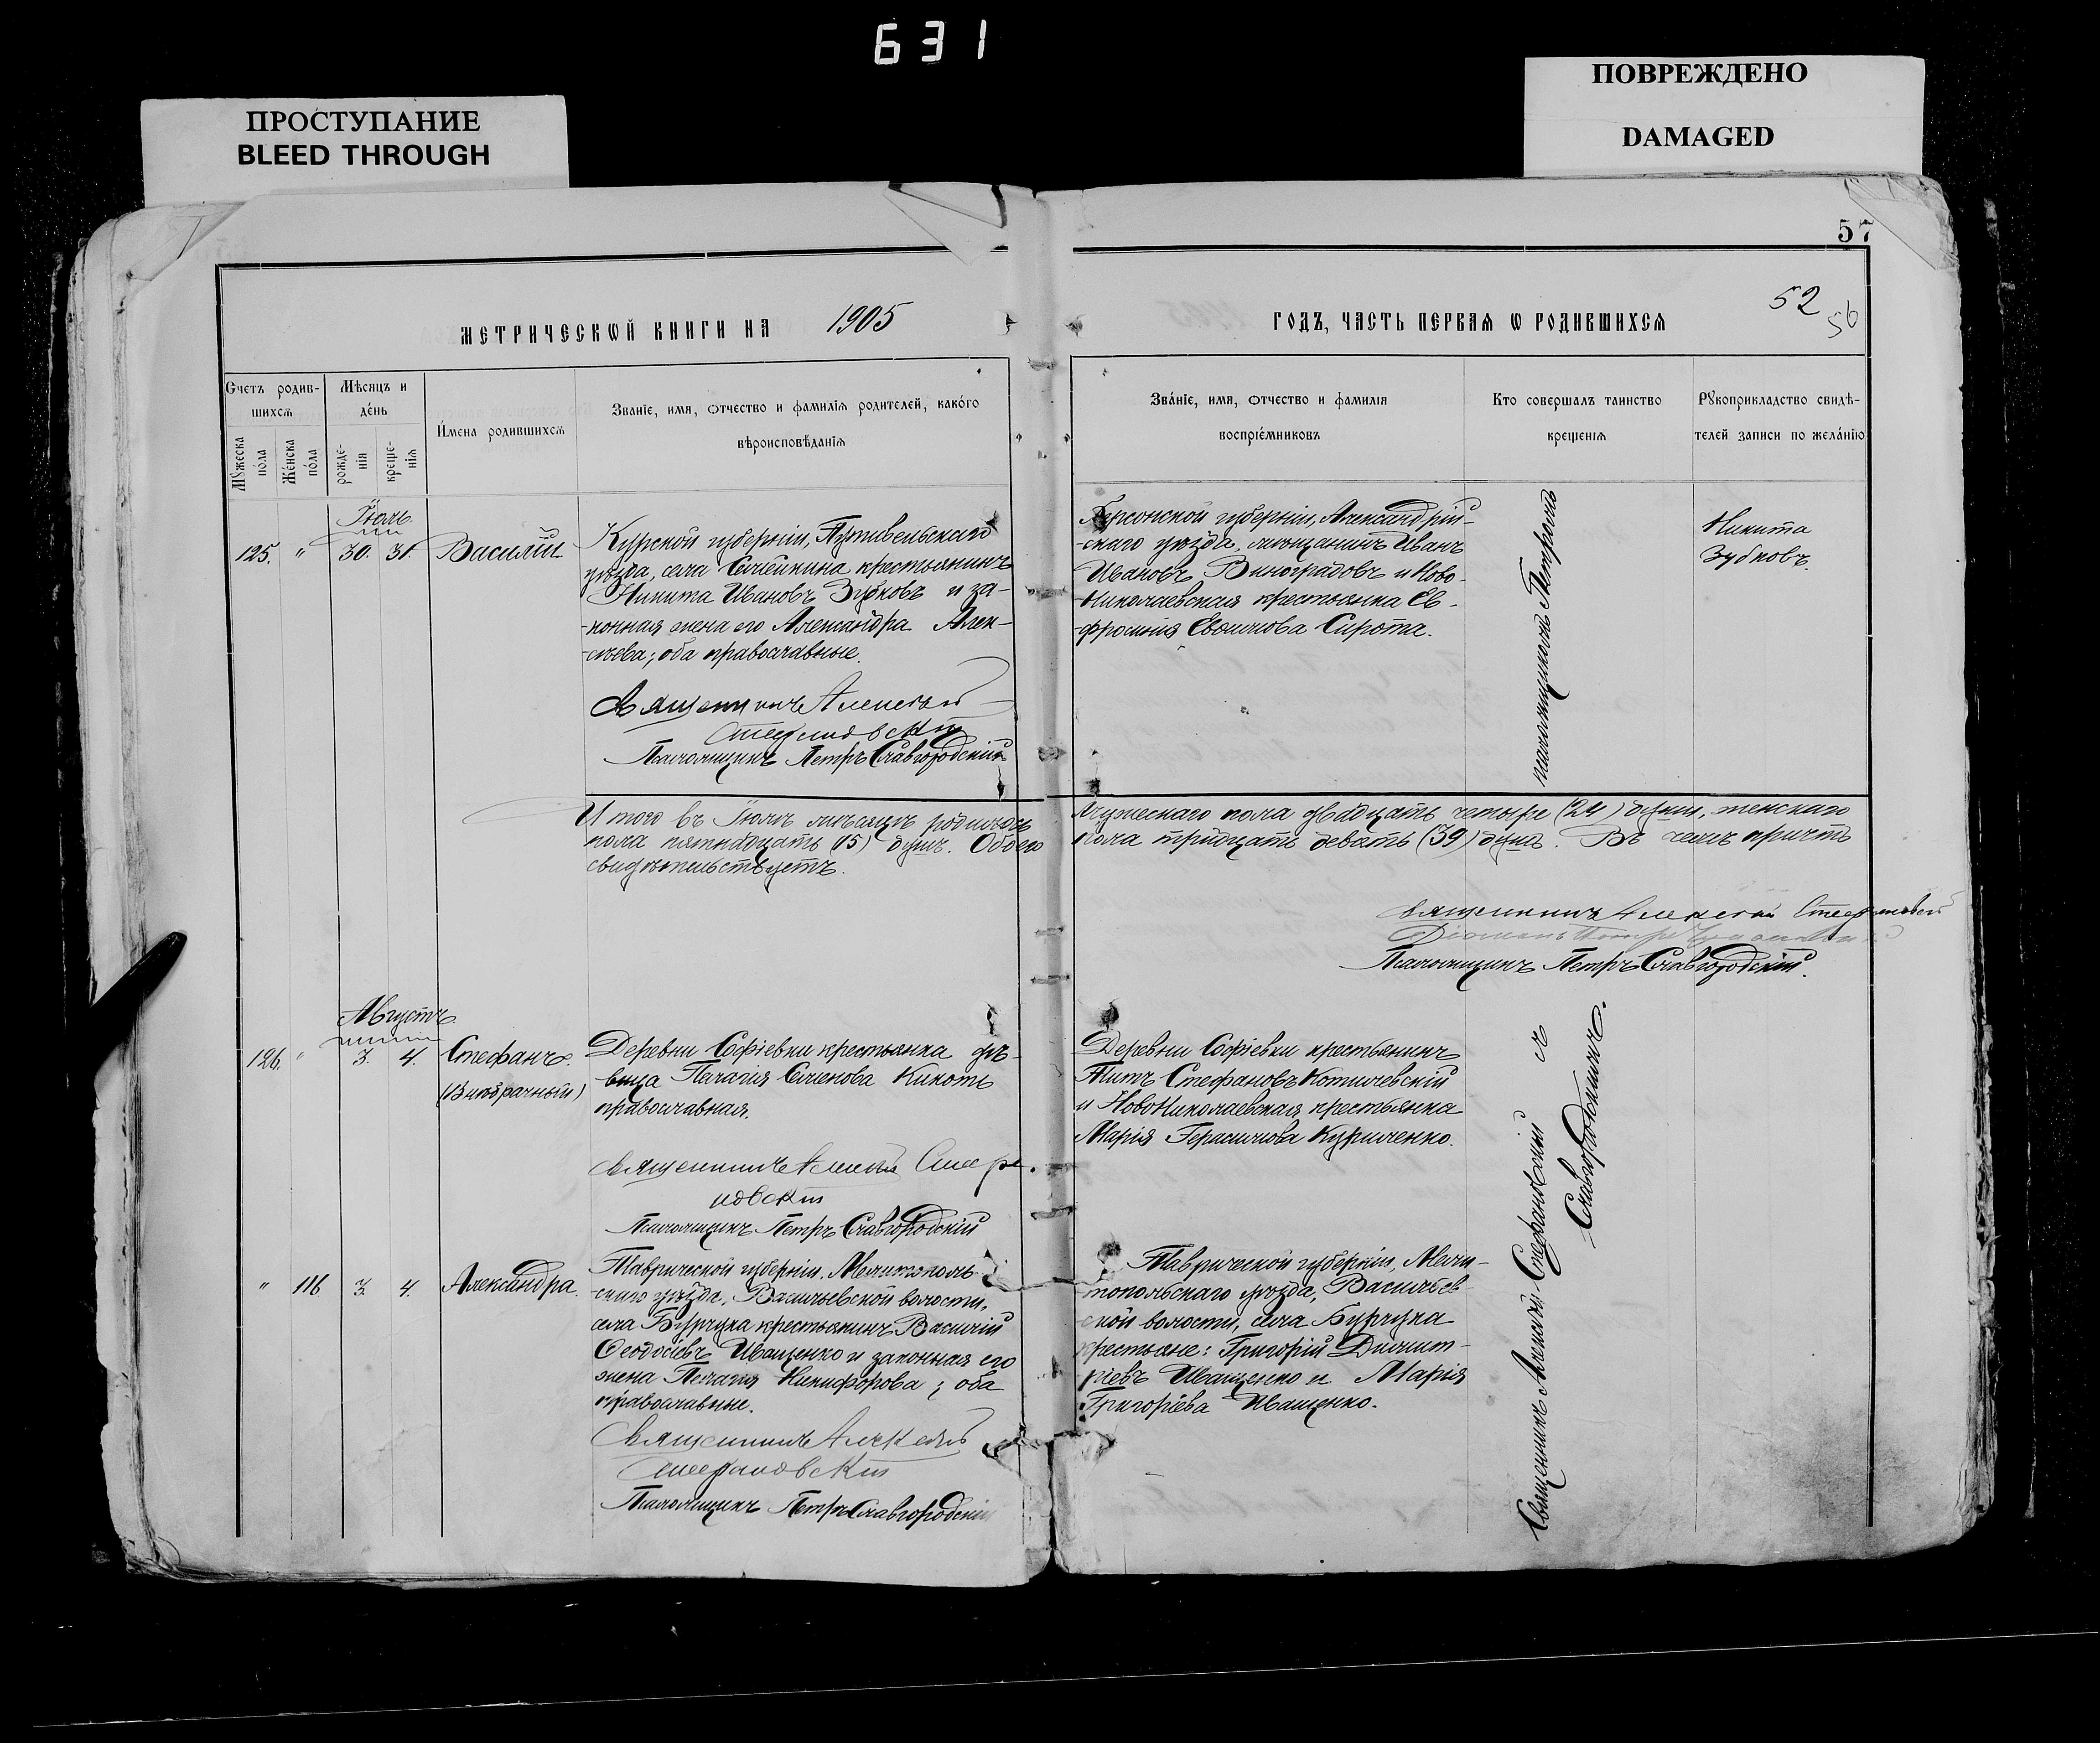 631
ПРОСТУПАНИЕ
BLEED THROUGH
ПОВРЕЖДЕНО
DAMAGED
57
52
56
МЕТРИЧЕСКѠЙ КНИГИ НА 1905
ГОДЪ, ЧАСТЬ ПЕРВАЯ Ѡ РОДИВШИХСЯ
Счетъ родив-
шихся
Мѣсяцъ и
де́нь
Мꙋжеска
по́ла
Же́нска
по́ла
рожде-
нїя
креще-
нїя
И́мена родившихся
Званїе, имя, ѻтчество и фамилїя родителей, како́го
вѣроисповѣданїя
Зва́нїе, имя, ѻтчество и фамилїя
воспрїе́мниковъ
Кто совершалъ таинство
крещенїя
Рꙋкоприкладство свидѣ-
телей записи по жела́нїю
Іюль
125. " 30. 31. Василій
Курской губерніи, Путивельскаго
уѣзда, села Семейкина крестьянинъ
Никита Ивановъ Зубковъ и за-
-конная жена его Александра Алек-
-сѣева; оба православные.
Священникъ Алексѣй
Стефановскій
Псаломщикъ Петръ Славгородскій
Херсонской губерніи, Александрій-
-скаго уѣзда, мѣщанинъ Иванъ
Ивановъ Виноградовъ и Ново-
-Николаевская крестьянка Ев-
-фросинія Сирота.
псаломщикомъ Петромъ
Никита
Зубковъ.
Итого въ Іюлѣ мѣсяцѣ родилось мужескаго пола двадцать четыре (24) души, женскаго
пола пятнадцать (15) душъ. Обоего пола тридцать девять (39) душъ. Въ чемъ причтъ
свидѣтельствуетъ.
Священникъ Алексѣй Стефановскій
Діаконъ Петръ
Псаломщикъ Петръ Славгородскій.
Августъ
126. " 3. 4. Стефанъ.
(Внѣбрачный)
Деревни Софіевки крестьянка дѣ-
вица Пелагія Семенова Кикоть
православная.
Священникъ Алексѣй Стефа-
новскій
Псаломщикъ Петръ Славгородскій
Деревни Софіевки крестьянинъ
Титъ Стефановъ Котилевскій
и НовоНиколаевская крестьянка
Марія Герасимова Куриленко.
" 116. 3. 4. Александра.
Таврической губерніи, Мелитополь-
-скаго уѣзда, Васильевской волости,
села Бурчука крестьянинъ Василій
Ѳеодосіевъ Иващенко и законная его
жена Пелагія Никифорова; оба
православные.
Священникъ Алексѣй
Стефановскій
Псаломщикъ Петръ Славгородскій
Таврической губерніи, Мели-
-топольскаго уѣзда, Васильев-
-ской волости, села Бурчука
крестьяне: Григорій Димит-
ріевъ Иващенко и Марія
Григоріева Иващенко.
Священникъ Алексѣй Стефановскій съ
Славгородскимъ.